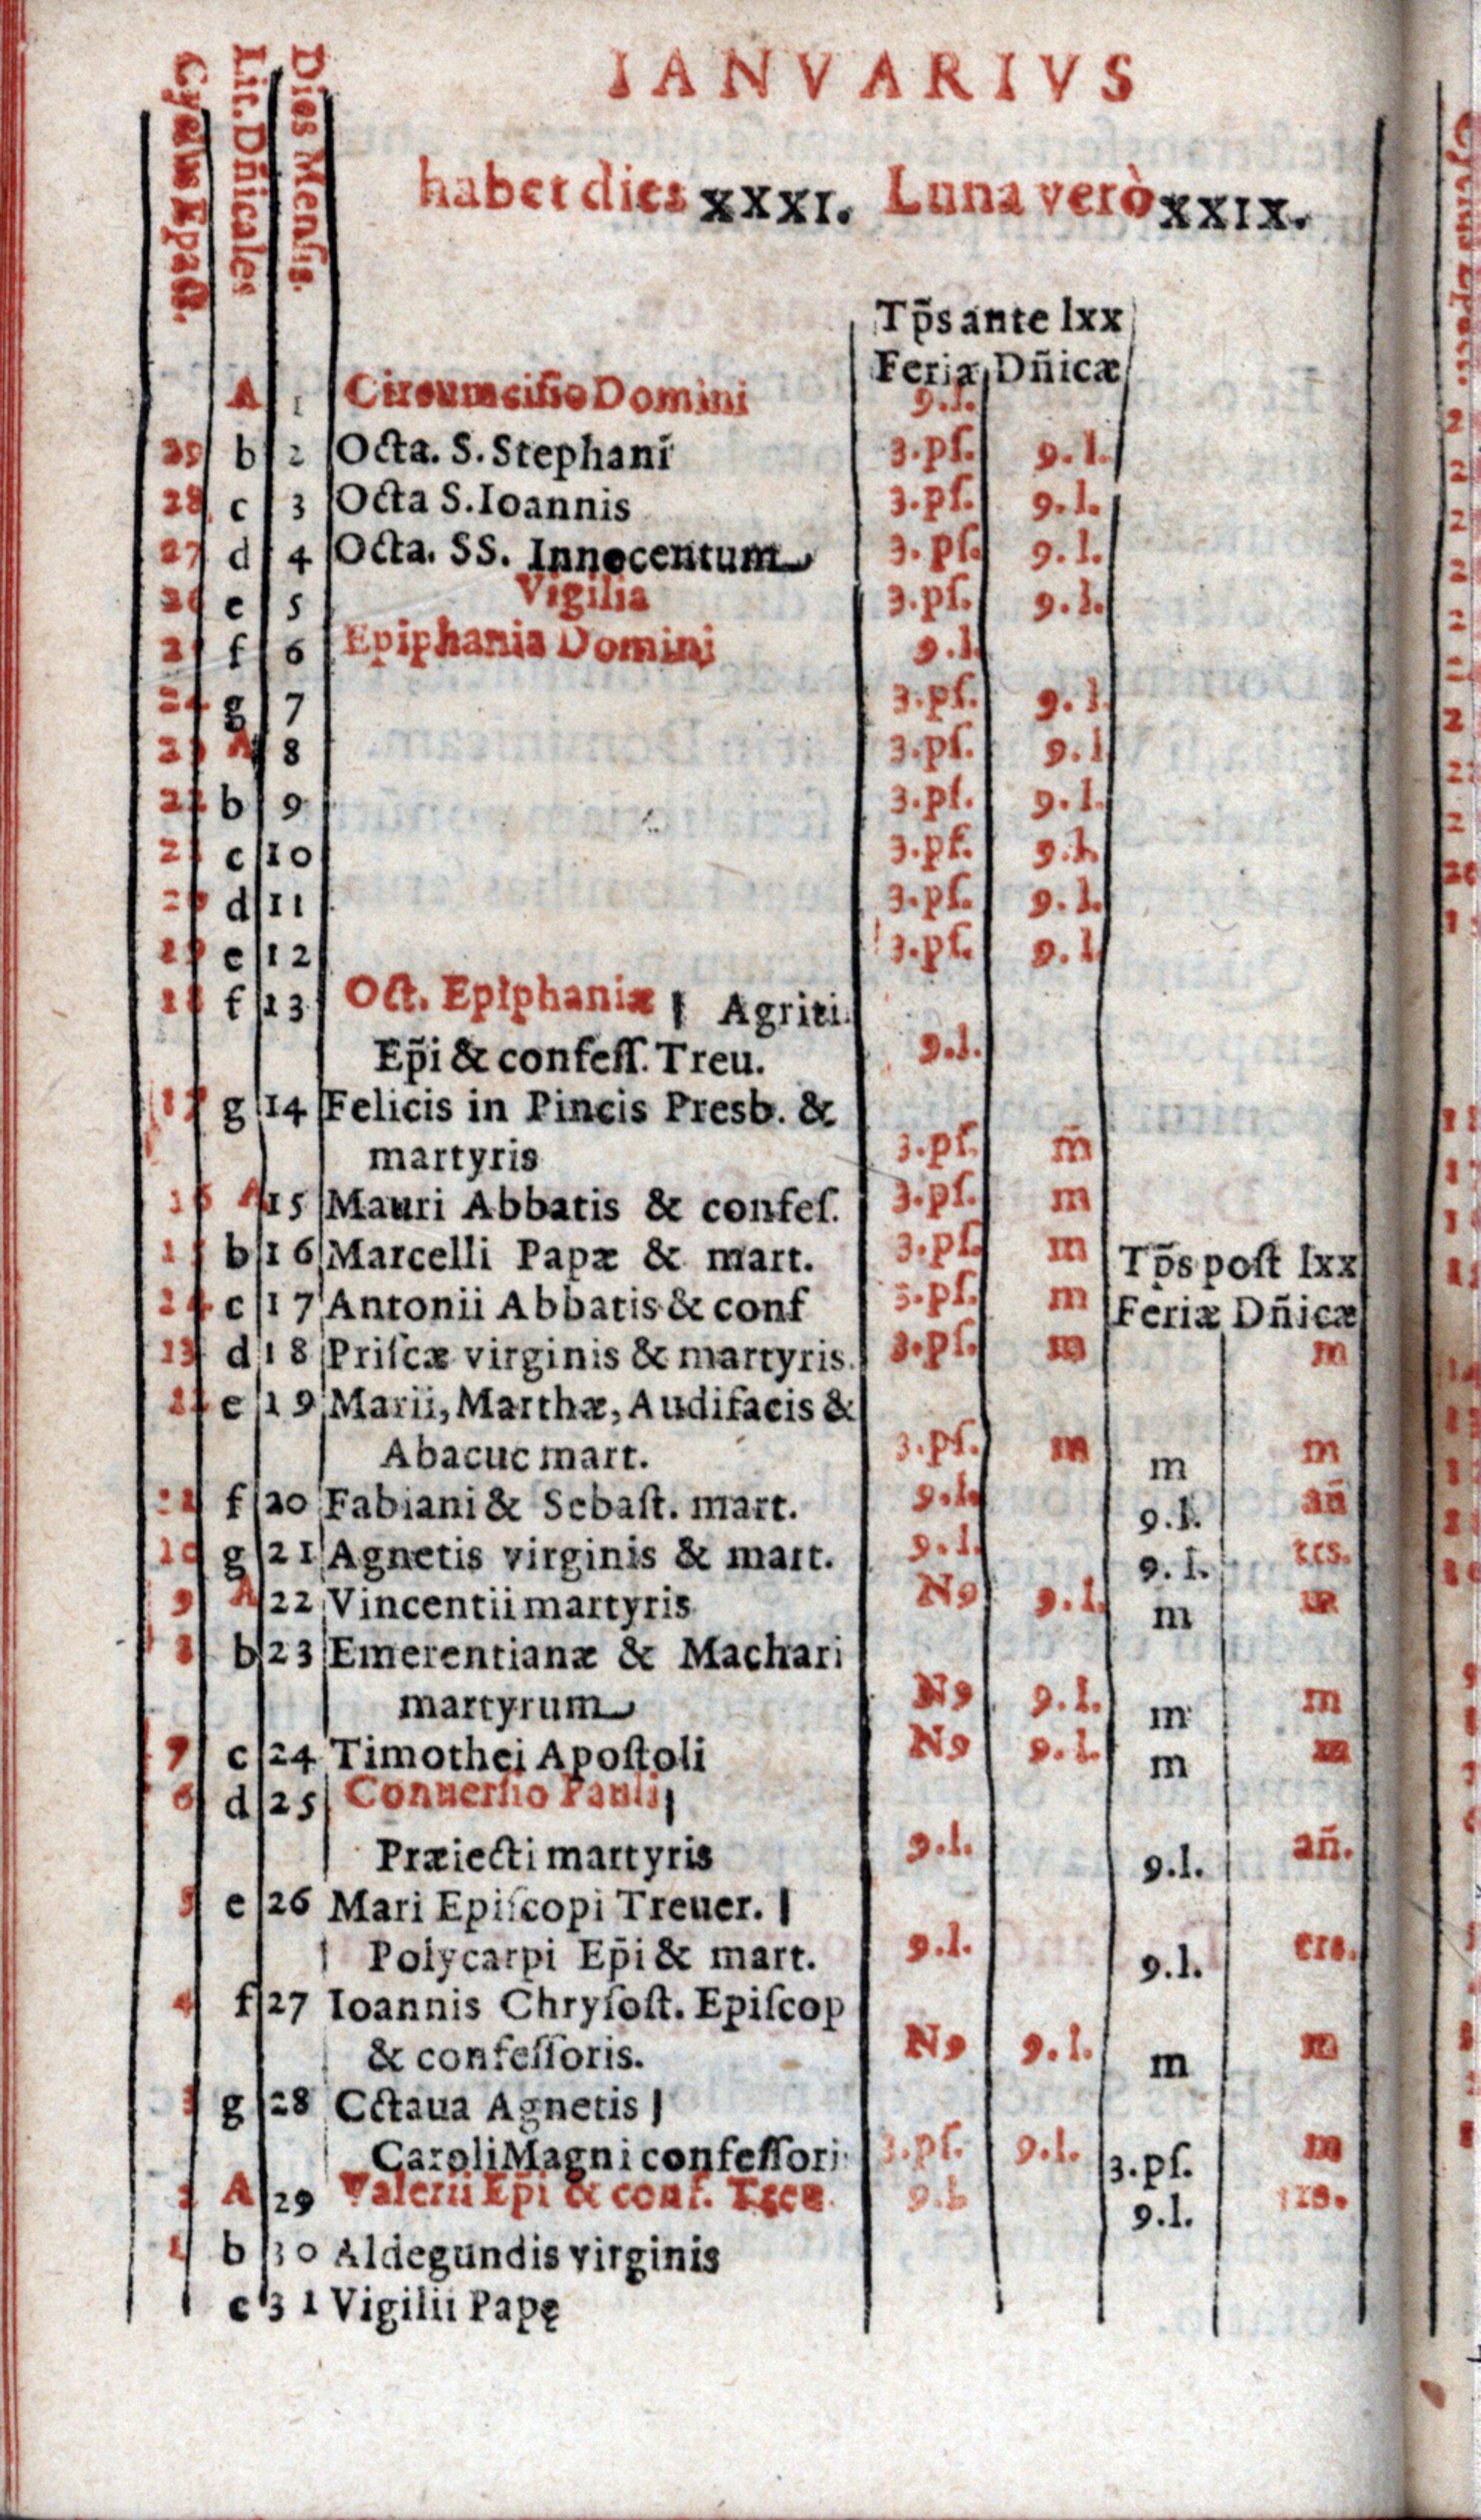 IANVARIVS
Cyclus Epact.
Lit. Dñicales
Dies Mensis.
habet dies XXXI. Luna verò XXIX.
Tp̃s ante lxx
Feriæ Dñicæ
A 1 Circumcisio Domini 9.l.
29 b 2 Octa. S. Stephani 3.pſ. 9.l.
28 c 3 Octa S. Ioannis 3.pſ. 9.l.
27 d 4 Octa. SS. Innocentum 3.pſ. 9.l.
26 e 5 Vigilia 3.pſ. 9.l.
f 6 Epiphania Domini 9.l.
24 g 7 3.pſ. 9.l.
23 A 8 3.pſ. 9.l
22 b 9 3.pſ. 9.l.
21 c 10 3.pſ. 9.l.
20 d 11 3.pſ. 9.l.
19 e 12 3.pſ. 9.l
18 f 13 Oct. Epiphaniæ | Agriti
Ep̃i & confeſſ. Treu. 9.l.
17 g 14 Felicis in Pincis Presb. &
martyris 3.pſ. m̃
16 A 15 Mauri Abbatis & confeſ. 3.pſ. m
15 b 16 Marcelli Papæ & mart. 3.pſ. m Tp̃s poſt lxx
14 c 17 Antonii Abbatis & conf 3.pſ. m Feriæ Dñicæ
13 d 18 Priſcæ virginis & martyris. 3.pſ. m m
12 e 19 Marii, Marthæ, Audifacis &
Abacuc mart. 3.pſ. m m m
11 f 20 Fabiani & Sebaſt. mart. 9.l. 9.l. añ
10 g 21 Agnetis virginis & mart. 9.l. 9.l. trs.
9 A 22 Vincentii martyris N9 9.l. m m
8 b 23 Emerentianæ & Machari
martyrum N9 9.l. m m
7 c 24 Timothei Apoſtoli N9 9.l. m m
6 d 25 Conuerſio Pauli |
Præiecti martyris 9.l. 9.l. añ.
5 e 26 Mari Epiſcopi Treuer. |
Polycarpi Ep̃i & mart. 9.l. 9.l. trs.
4 f 27 Ioannis Chryſoſt. Epiſcop
& confeſſoris. N9 9.l. m m
3 g 28 Cctaua Agnetis |
Caroli Magni confeſſori 3.pſ. 9.l. 3.pſ. m
2 A 29 Valerii Ep̃i & conf. Treu. 9.l 9.l. trs.
1 b 30 Aldegundis virginis
c 31 Vigilii Papę